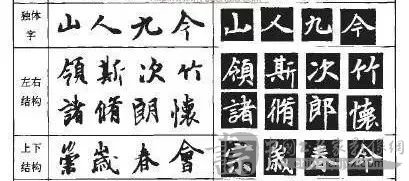 独体字
山人九今
山人九今
左右结构
領斯次竹
諸脩朗懷
領斯次竹
諸脩郎懷
上下结构
崇歲春會
崇歲春